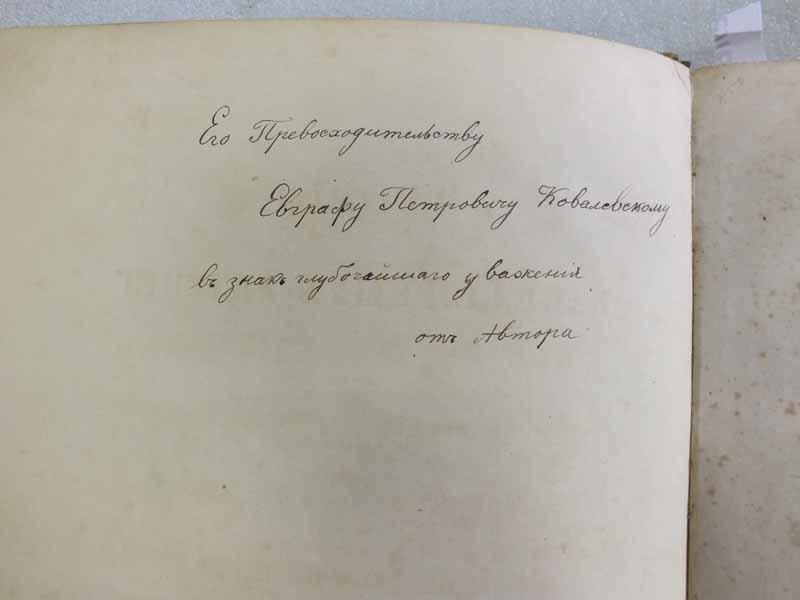 Его Превосходительству
Евграфу Петровичу Ковалевскому
въ знакъ глубочайшаго уваженія
отъ Автора